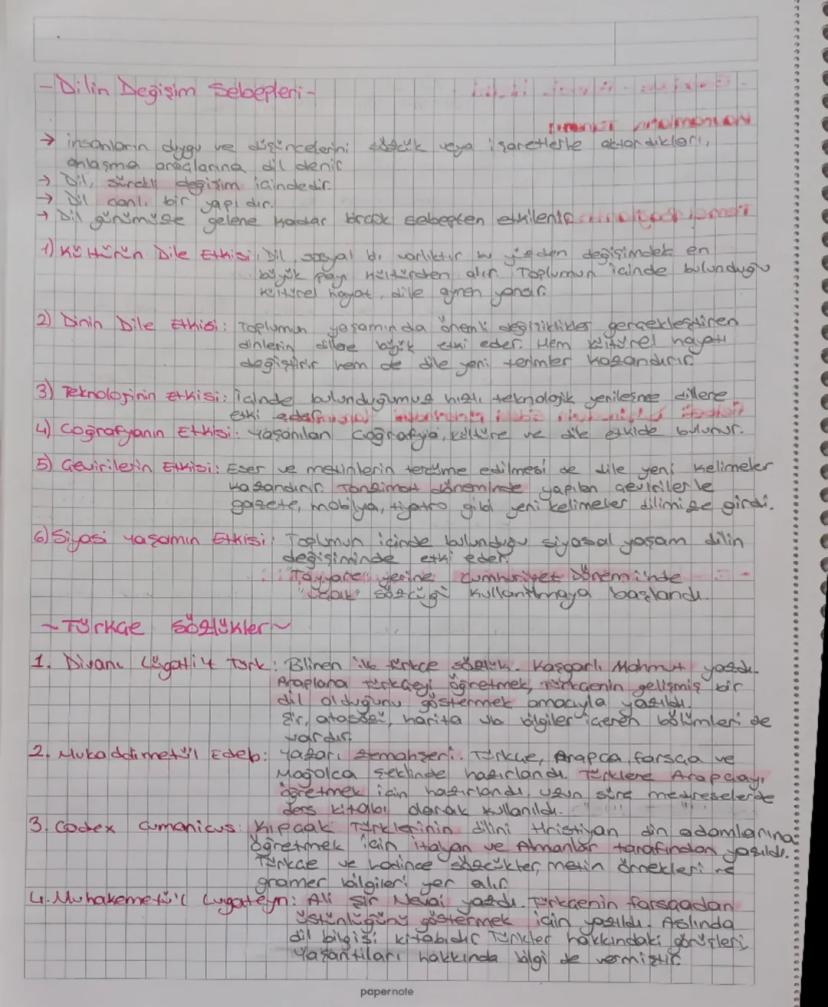 -Dilin Değişim Sebepleri-
→ insanların duygu ve düşüncelerini sözcük veya işaretlerle aktardıkları,
anlaşma araçlarına dil denir
→ Dil, sürekli değişim içindedir.
→ Dil canlı bir yapıdır.
→ Dil günümüze gelene kadar birçok sebepten etkilenir
1) Kültürün Dile Etkisi: Dil, sosyal bir varlıktır bu yüzden değişimdek en
büyük payı kültürden alır. Toplumun içinde bulunduğu
kültürel hayat, dile aynen yansır.
2) Dinin Dile Etkisi: Toplumun yaşamında önemli değişiklikler gerçekleştiren
dinlerin dillere büyük etki eder. Hem kültürel hayatı
değiştirir hem de dile yeni terimler kazandırır
3) Teknolojinin Etkisi: İçinde bulunduğumuz hızlı teknolojik yenileşme dillere
etki eder
4) Coğrafyanın Etkisi: Yaşanılan coğrafya, kültüre ve dile etkide bulunur.
5) Çevirilerin Etkisi: Eser ve metinlerin tercüme edilmesi de dile yeni kelimeler
kazandırır. Tanzimat döneminde yapılan çevirilerle
gazete, mobilya, tiyatro gibi yeni kelimeler dilimize girdi.
6) Siyasi yaşamın Etkisi: Toplumun içinde bulunduğu siyasal yaşam dilin
değişiminde etki eder.
Tayyare yerine Cumhuriyet Döneminde
"uçak" sözcüğü kullanılmaya başlandı.
~Türkçe Sözlükler~
1. Divanı Lügati't Türk: Bilinen ilk türkçe sözlük. Kaşgarlı Mahmut yazdı.
Araplara türkçeyi öğretmek, türkçenin gelişmiş bir
dil olduğunu göstermek amacıyla yazıldı.
Şiir, atasözü, harita vb bilgiler içeren bölümleri de
vardır.
2. Mukaddimetü'l Edeb: Yazarı Zemahşeri. Türkçe, Arapça, farsça ve
Moğolca şeklinde hazırlandı. Türklere Arapçayı
öğretmek için hazırlandı, uzun süre medreselerde
ders kitabı olarak kullanıldı.
3. Codex Cumanicus: Kıpçak Türklerinin dilini Hristiyan din adamlarına
öğretmek için İtalyan ve Almanlar tarafından yazıldı.
Türkçe ve latince sözcükler, metin örnekleri ve
gramer bilgileri yer alır
4. Muhakemetü'l Lugateyn: Ali Şir Nevai yazdı. Türkçenin farsçadan
üstünlüğünü göstermek için yazıldı. Aslında
dil bilgisi kitabıdır Türkler hakkındaki görüşleri
yaşantıları hakkında bilgi de vermiştir.
papernote